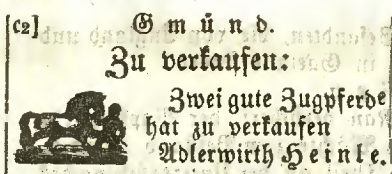 c2] Gmünd.
Zu verkaufen:
Zwei gute Zugpferde
hat zu verkaufen
Adlerwirth Heinle.